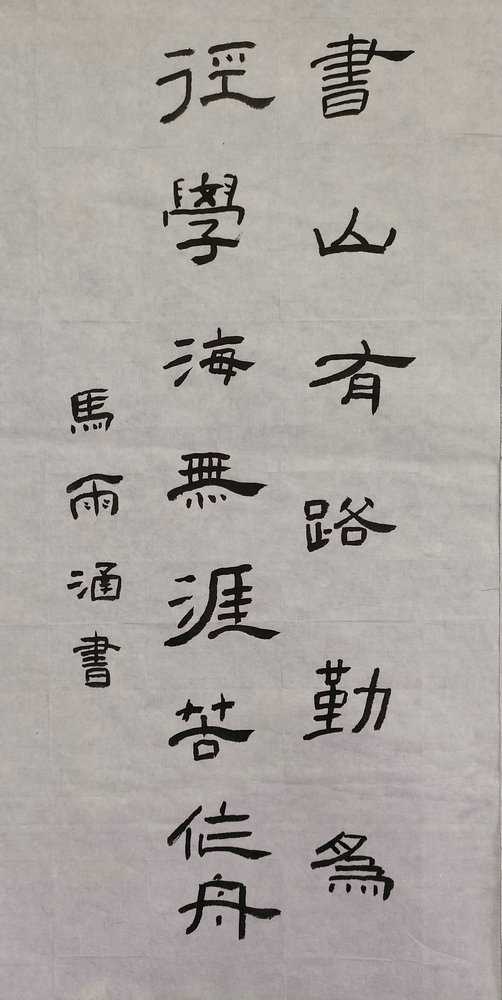 書山有路勤為
徑學海無涯苦作舟
馬雨涵書